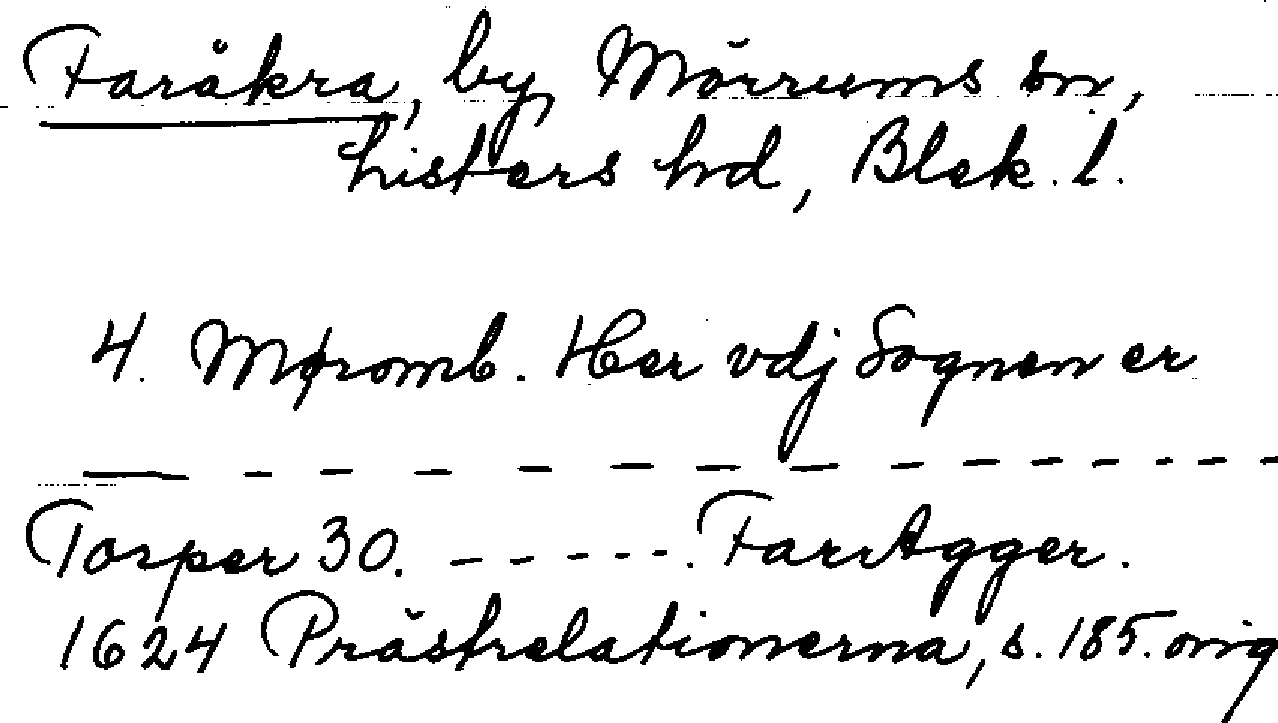 Faråkra, by, Mörrums sn,
Listers hd, Blek. l.
4. Møromb. Her vdj Sognen er
— – – – – – – – – – – – – –
Torper 30. – – – – – . FarrAgger.
1624 Prästrelationerna, s. 185. orig